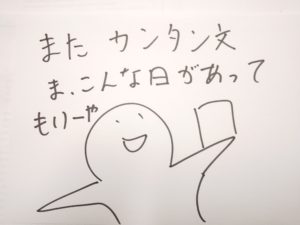 また カンタン文
ま、こんな日があって
もいーや